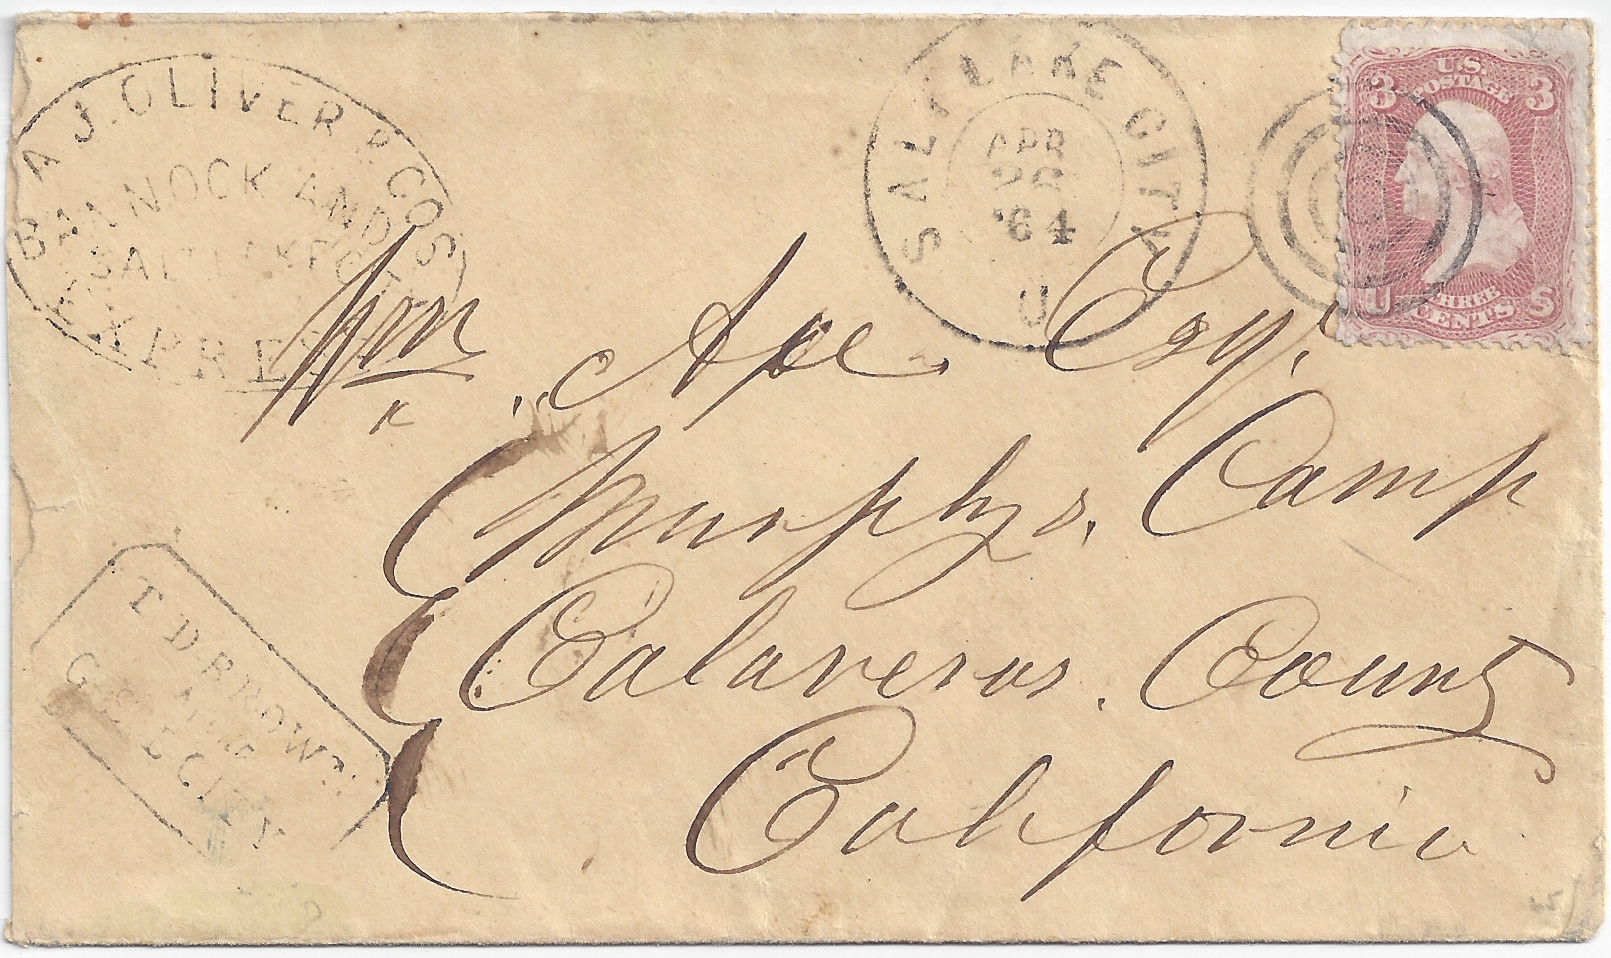 A. J. OLIVER & COS
BANNOCK AND
SALT LAKE CITY
EXPRESS
SALT LAKE CITY
APR
'64
U
3 U.S. 3
POSTAGE
U THREE S
CENTS
Wm Ape. Esqr.
Murphys. Camp
Calaveras. County
California
T D BROWN
CITY